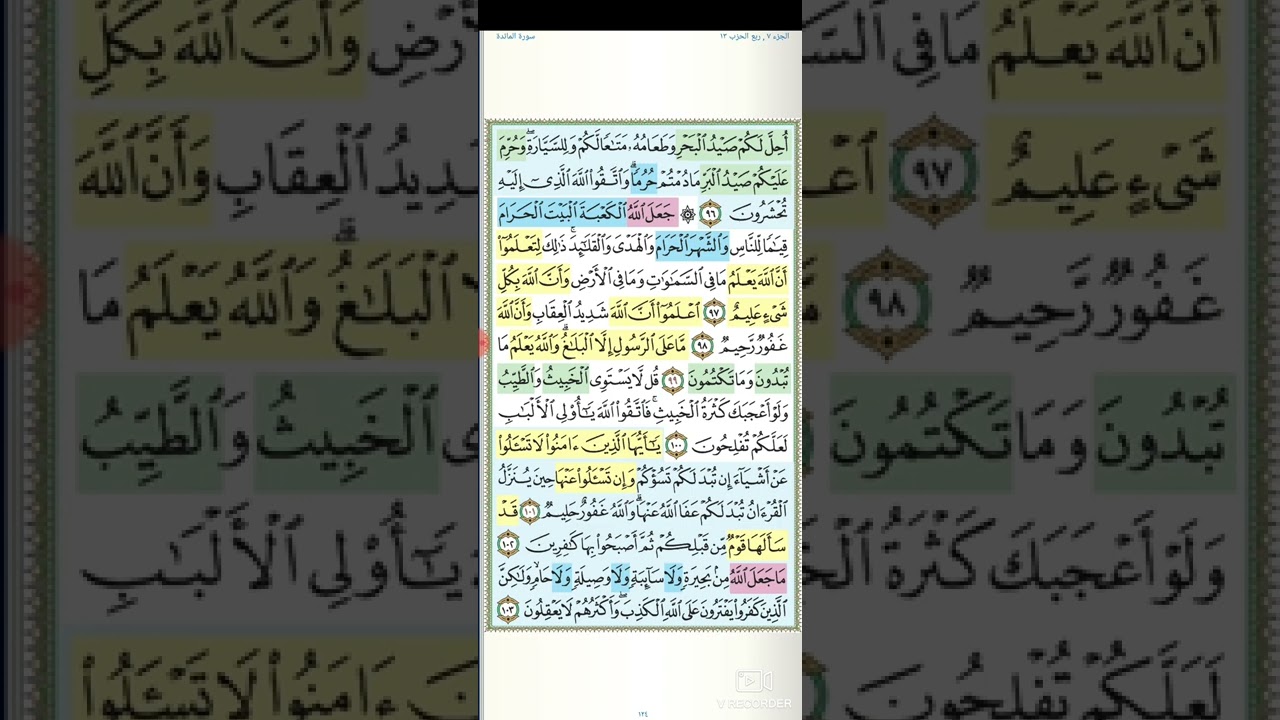 الجزء ٧ , ربع الحزب ١٣
سورة المائدة
أُحِلَّ لَكُمْ صَيْدُ ٱلْبَحْرِ وَطَعَامُهُۥ مَتَٰعًا لَّكُمْ وَلِلسَّيَّارَةِ ۖ وَحُرِّمَ
عَلَيْكُمْ صَيْدُ ٱلْبَرِّ مَا دُمْتُمْ حُرُمًا ۗ وَٱتَّقُوا۟ ٱللَّهَ ٱلَّذِىٓ إِلَيْهِ
تُحْشَرُونَ ٩٦ ۞ جَعَلَ ٱللَّهُ ٱلْكَعْبَةَ ٱلْبَيْتَ ٱلْحَرَامَ
قِيَٰمًا لِّلنَّاسِ وَٱلشَّهْرَ ٱلْحَرَامَ وَٱلْهَدْىَ وَٱلْقَلَٰٓئِدَ ۚ ذَٰلِكَ لِتَعْلَمُوٓا۟
أَنَّ ٱللَّهَ يَعْلَمُ مَا فِى ٱلسَّمَٰوَٰتِ وَمَا فِى ٱلْأَرْضِ وَأَنَّ ٱللَّهَ بِكُلِّ
شَىْءٍ عَلِيمٌ ٩٧ ٱعْلَمُوٓا۟ أَنَّ ٱللَّهَ شَدِيدُ ٱلْعِقَابِ وَأَنَّ ٱللَّهَ
غَفُورٌ رَّحِيمٌ ٩٨ مَّا عَلَى ٱلرَّسُولِ إِلَّا ٱلْبَلَٰغُ ۗ وَٱللَّهُ يَعْلَمُ مَا
تُبْدُونَ وَمَا تَكْتُمُونَ ٩٩ قُل لَّا يَسْتَوِى ٱلْخَبِيثُ وَٱلطَّيِّبُ
وَلَوْ أَعْجَبَكَ كَثْرَةُ ٱلْخَبِيثِ ۚ فَٱتَّقُوا۟ ٱللَّهَ يَٰٓأُو۟لِى ٱلْأَلْبَٰبِ
لَعَلَّكُمْ تُفْلِحُونَ ١٠٠ يَٰٓأَيُّهَا ٱلَّذِينَ ءَامَنُوا۟ لَا تَسْـَٔلُوا۟
عَنْ أَشْيَآءَ إِن تُبْدَ لَكُمْ تَسُؤْكُمْ وَإِن تَسْـَٔلُوا۟ عَنْهَا حِينَ يُنَزَّلُ
ٱلْقُرْءَانُ تُبْدَ لَكُمْ عَفَا ٱللَّهُ عَنْهَا ۗ وَٱللَّهُ غَفُورٌ حَلِيمٌ ١٠١ قَدْ
سَأَلَهَا قَوْمٌ مِّن قَبْلِكُمْ ثُمَّ أَصْبَحُوا۟ بِهَا كَٰفِرِينَ ١٠٢
مَا جَعَلَ ٱللَّهُ مِنۢ بَحِيرَةٍ وَلَا سَآئِبَةٍ وَلَا وَصِيلَةٍ وَلَا حَامٍ ۙ وَلَٰكِنَّ
ٱلَّذِينَ كَفَرُوا۟ يَفْتَرُونَ عَلَى ٱللَّهِ ٱلْكَذِبَ ۖ وَأَكْثَرُهُمْ لَا يَعْقِلُونَ ١٠٣
V RECORDER
١٢٤